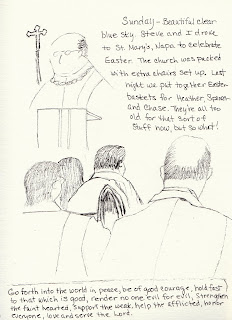 Sunday - Beautiful clear
blue sky. Steve and I drove
to St. Mary's, Napa to celebrate
Easter. The church was packed
with extra chairs set up. Last
night we put together Easter
baskets for Heather, Spencer
and Chase. They're all too
old for that sort of
stuff now, but so what!
Go forth into the world in peace, be of good courage, hold fast
to that which is good, render no one evil for evil, strengthen
the faint hearted, support the weak, help the afflicted, honor
everyone, love and serve the Lord.